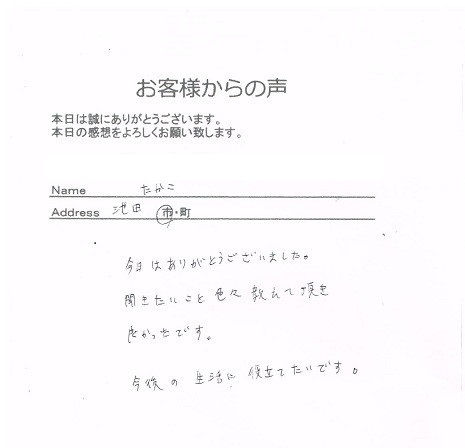 お客様からの声
本日は誠にありがとうございます。
本日の感想をよろしくお願い致します。
Name たかこ
Address 池田 市・町
今日はありがとうございました。
聞きたいこと色々教えて頂き
良かったです。
今後の生活に役立てたいです。